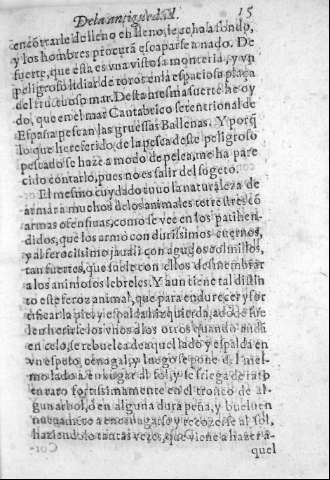 De la antiguedad. 15
encõtrarle de lleno en lleno, le echa a fondo,
y los hombres procurã escaparse a nado. De
fuerte, que esta es vna vistosa monteria, y vn
peligroso lidiar de toros en la espaciosa plaça
del fructuoso mar. Desta mesma suerte he oy
do, que en el mar Cantabrico setentrional de
España pescan las gruessas Ballenas. Y porq̃
lo que he referido de la pesca deste peligroso
pescado se haze a modo de pelea, me ha pare
cido contarlo, pues no es salir del sugeto.
El mesmo cuydado tuuo la naturaleza de
armar a muchos de los animales terrestres cõ
armas ofensiuas, como se vee en los patihen-
didos, que los armò con durissimos cuernos,
y al ferocissimo jauali con agudos colmillos,
tan fuertes, que suele con ellos desmembrar
a los animosos lebreles. Y aun tiene tal distin
to este feroz animal, que para endurecer y for
tificar la piel y espalda izquierda, adõde sue
len herirse los vnos a los otros quando andã
en celo, se rebuelca de aquel lado y espalda en
vn espeso cenagal, y luego se pone del mes-
mo lado a enxugar al sol, y se friega de rato
en rato fortissimamente en el tronco de al-
gun arbol, ó en alguna dura peña, y bueluen
nueuamente a encenagarse y recozerse al sol,
haziendolo tantas vezes, que viene a hazer a-
quel